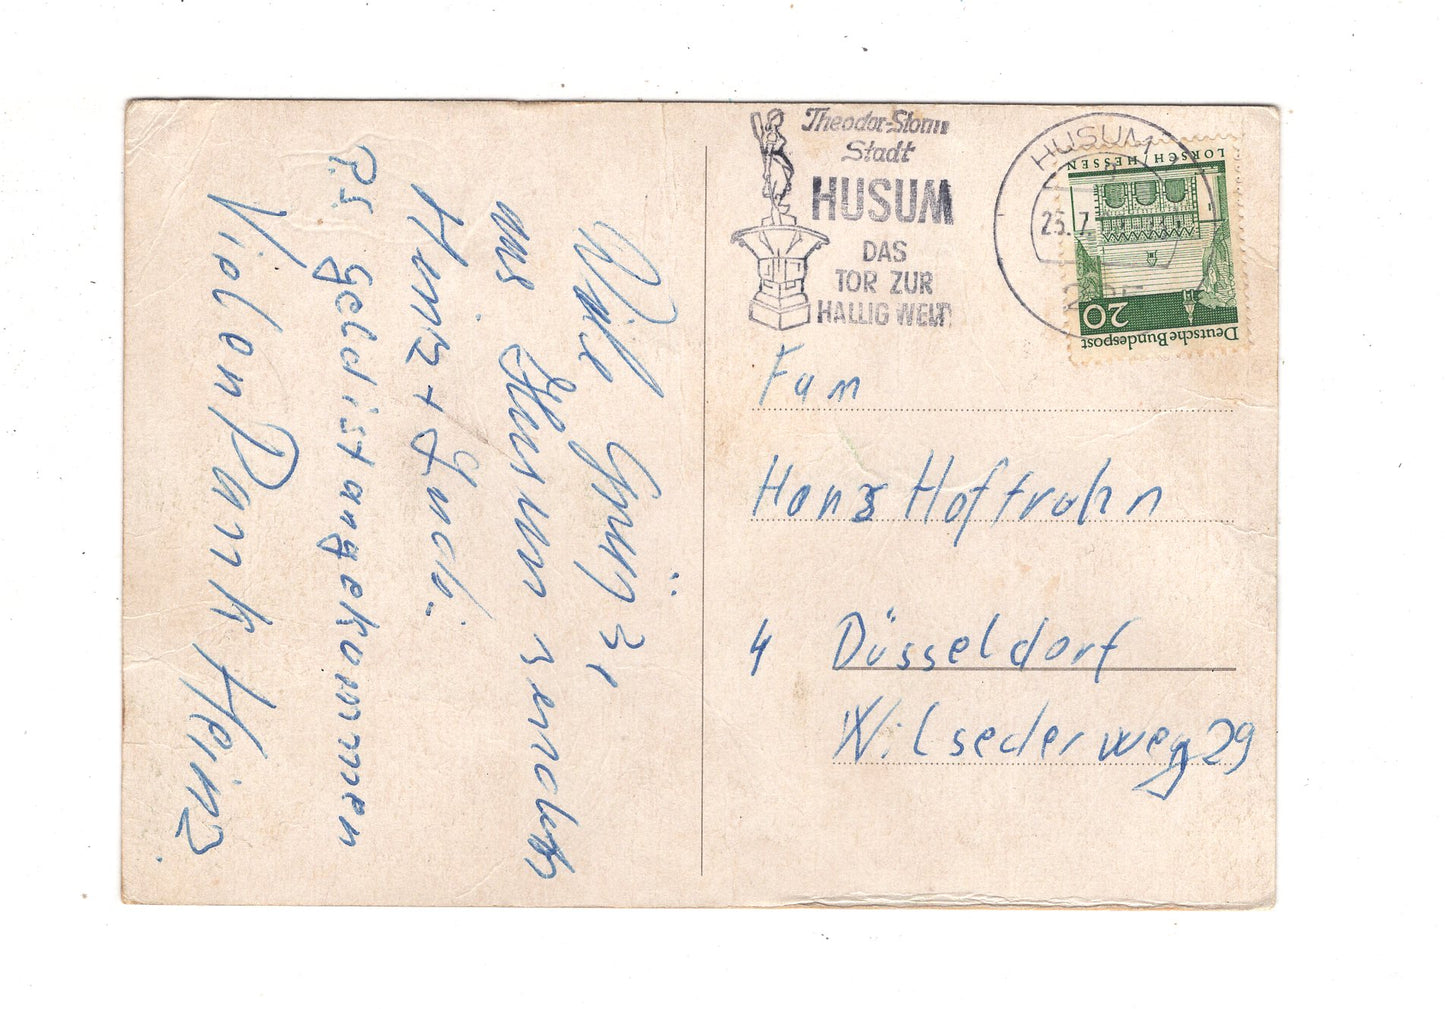 Theodor-Storm
Stadt
HUSUM
DAS
TOR ZUR
HALLIG WELT
HUSUM
LORSCH/HESSEN
20
Deutsche Bundespost
Fam
Hans
4 Düsseldorf
Wilsederweg 29
Viele Grüße,
aus Husum sendet
Heinz +
P.S Geld ist angekommen
Vielen Dank Heinz.